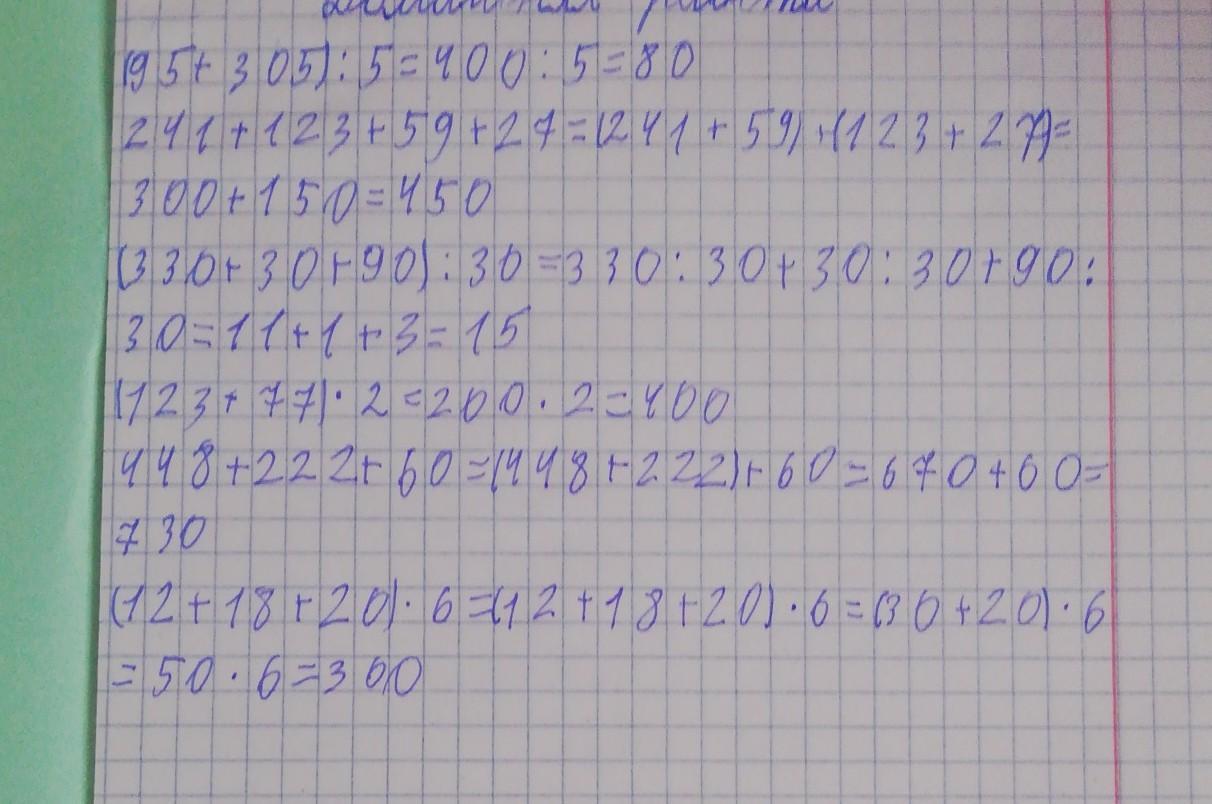 (95+305):5=400:5=80
241+123+59+27=(241+59)+(123+27)=
300+150=450
(330+30+90):30=330:30+30:30+90:
30=11+1+3=15
(123+77)·2=200·2=400
448+222+60=(448+222)+60=670+60=
730
(12+18+20)·6=(12+18+20)·6=(30+20)·6
=50·6=300